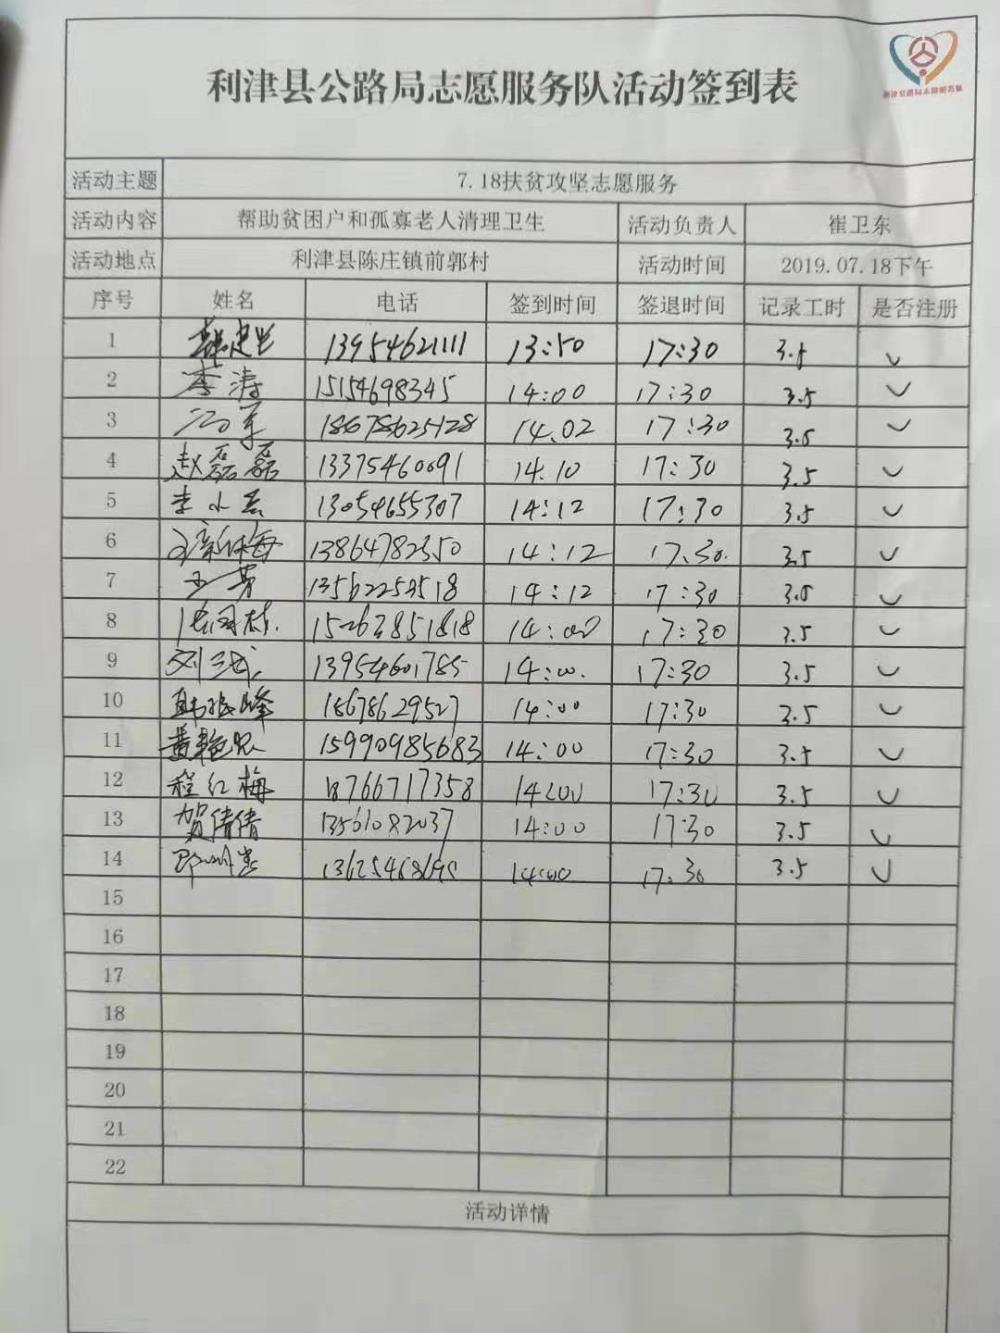 利津县公路局志愿服务队活动签到表
利津公路局志愿服务队
活动主题 7.18扶贫攻坚志愿服务
活动内容 帮助贫困户和孤寡老人清理卫生 活动负责人 崔卫东
活动地点 利津县陈庄镇前郭村 活动时间 2019.07.18下午
序号 姓名 电话 签到时间 签退时间 记录工时 是否注册
1 13954621111 13:50 17:30 3.5 ✓
2 李涛 15154698345 14:00 17:30 3.5 ✓
3 18678625128 14.02 17:30 3.5 ✓
4 赵磊磊 13375460691 14.10 17:30 3.5 ✓
5 李小磊 13054655307 14:12 17:30 3.5 ✓
6 13864782350 14:12 17:30. 3.5 ✓
7 王芳 13562253518 14:12 17:30 3.5 ✓
8 15263851818 14:00 17:30 3.5 ✓
9 13954601785 14:00. 17:30 3.5 ✓
10 韩振峰 18678629527 14:00 17:30 3.5 ✓
11 15990985683 14:00 17:30 3.5 ✓
12 程红梅 18766717358 14:00 17:30 3.5 ✓
13 贺倩倩 13561082037 14:00 17:30 3.5 ✓
14 14:00 17:30 3.5 ✓
15
16
17
18
19
20
21
22
活动详情